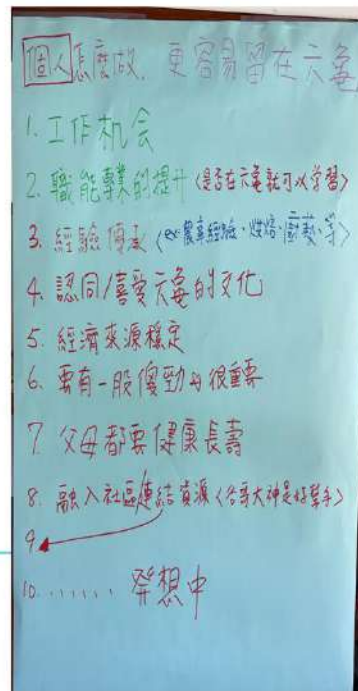 個人怎麼做,更容易留在六龜
1. 工作机会
2. 職能專業的提升<是否在六龜就可以學習>
3. 經驗傳承<ex農事經驗、烘焙、廚藝、等>
4. 認同/喜愛六龜的文化
5. 經濟來源穩定
6. 要有一股傻勁也很重要
7. 父母都要健康長壽
8. 融入社區/連結資源<谷哥大神是好幫手>
9
10. ...... 發想中